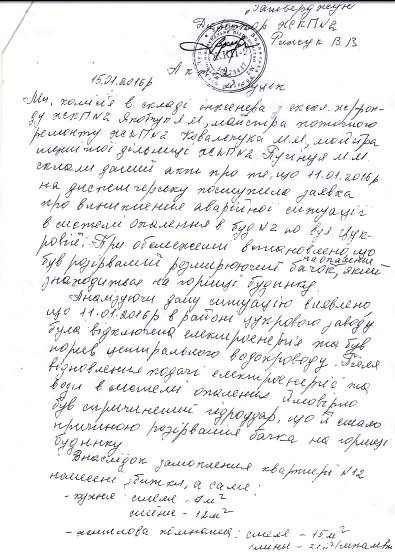 Затверджую
Директор ЖЕКП№2
В В
15.01.2016р
Акт
Ми, комісія в складі інженера з експл. ж/фон-
ду ЖЕКП№2 М, майстра поточного
ремонту ЖЕКП№2 Ковальчука М.М, майстра
дільниці ЖЕКП№2 М.М
склали даний акт про те, що 11.01.2016р
на диспетчерську поступила заявка
про виникнення аварійної ситуації
в системі опалення в буд №2 по вул Цук-
ровій. При обстеженні встановлено, що
був розірваний розширюючий бачок, який
знаходиться на горищі будинку.
Аналізуючи дану ситуацію виявлено,
що 11.01.2016р в районі цукрового заводу
була відключена електроенергія та був
порив центрального водопроводу. Після
відновлення подачі електроенергії та
води в системі опалення ймовірно
був спричинений гідроудар, що й стало
причиною розірвання бачка на горищі
будинку
Внаслідок затоплення квартирі №12
нанесені збитки, а саме:
- кухня: стеля - 9м²
стіни - 12м²
- житлова кімната: стеля - 15м²
стіни - 21м²